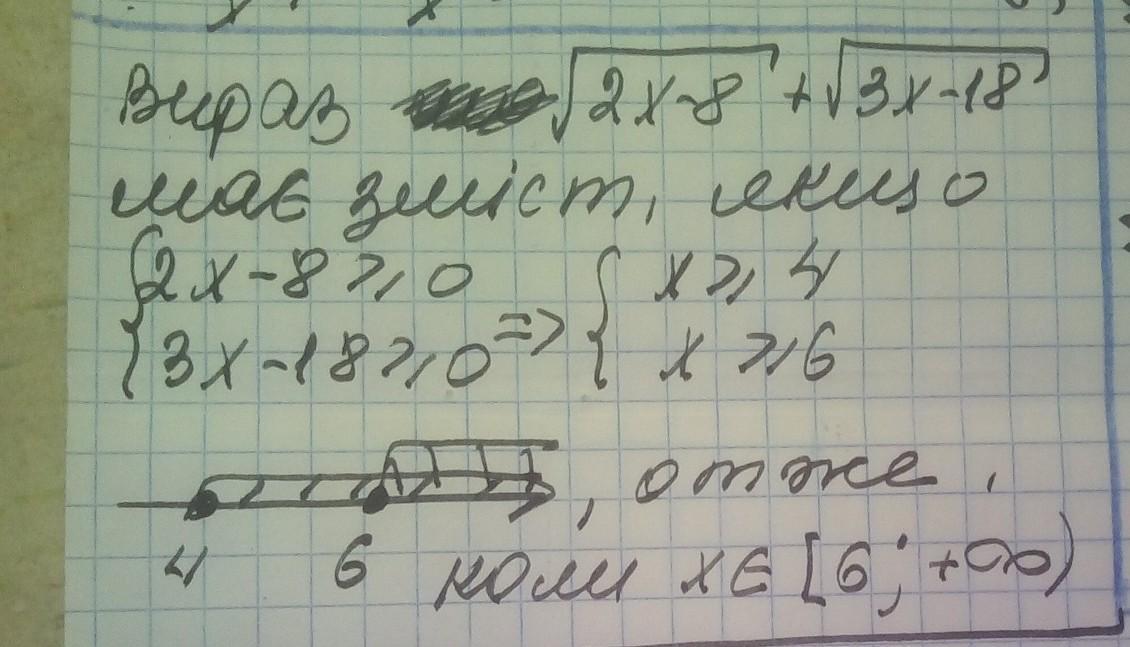 Вираз √2x-8 + √3x-18
має зміст, якщо
{2x-8⩾0 {x⩾4
{3x-18⩾0 => {x⩾6
, отже,
4 6 коли x∈[6; +∞)